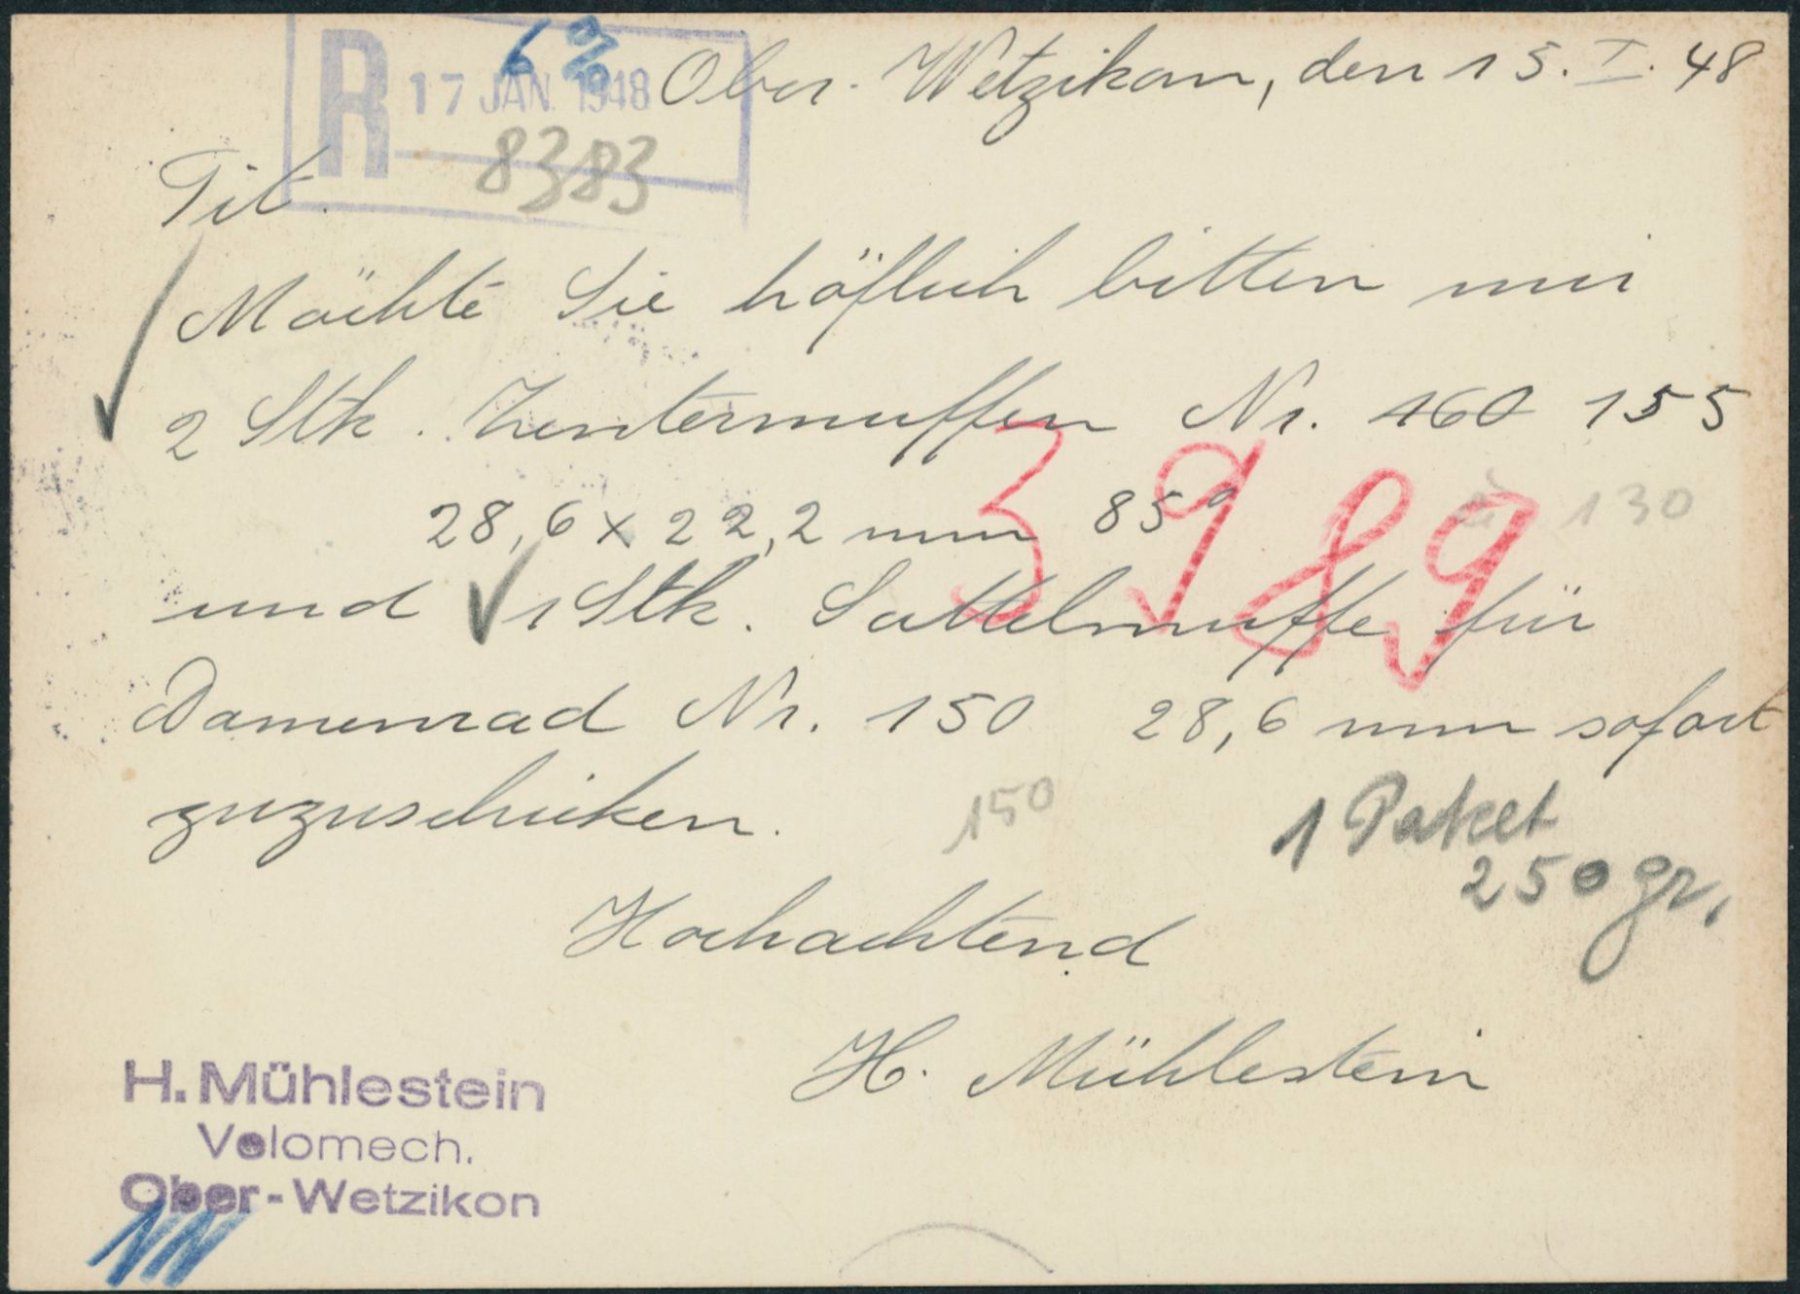 R 17 JAN. 1948
8383
Ober-Wetzikon, den 15. I. 48
Tit.
Möchte Sie höflich bitten mir
2 Stk. Zentermuffen Nr. 160 155
28,6 x 22,2 mm 85°
à 130
3989
und 1 Stk. Sattelmuffe für
Damenrad Nr. 150 28,6 mm sofort
zuzuschicken.
150
1 Paket
250 gr.
Hochachtend
H. Mühlestein
H. Mühlestein
Velomech.
Ober-Wetzikon